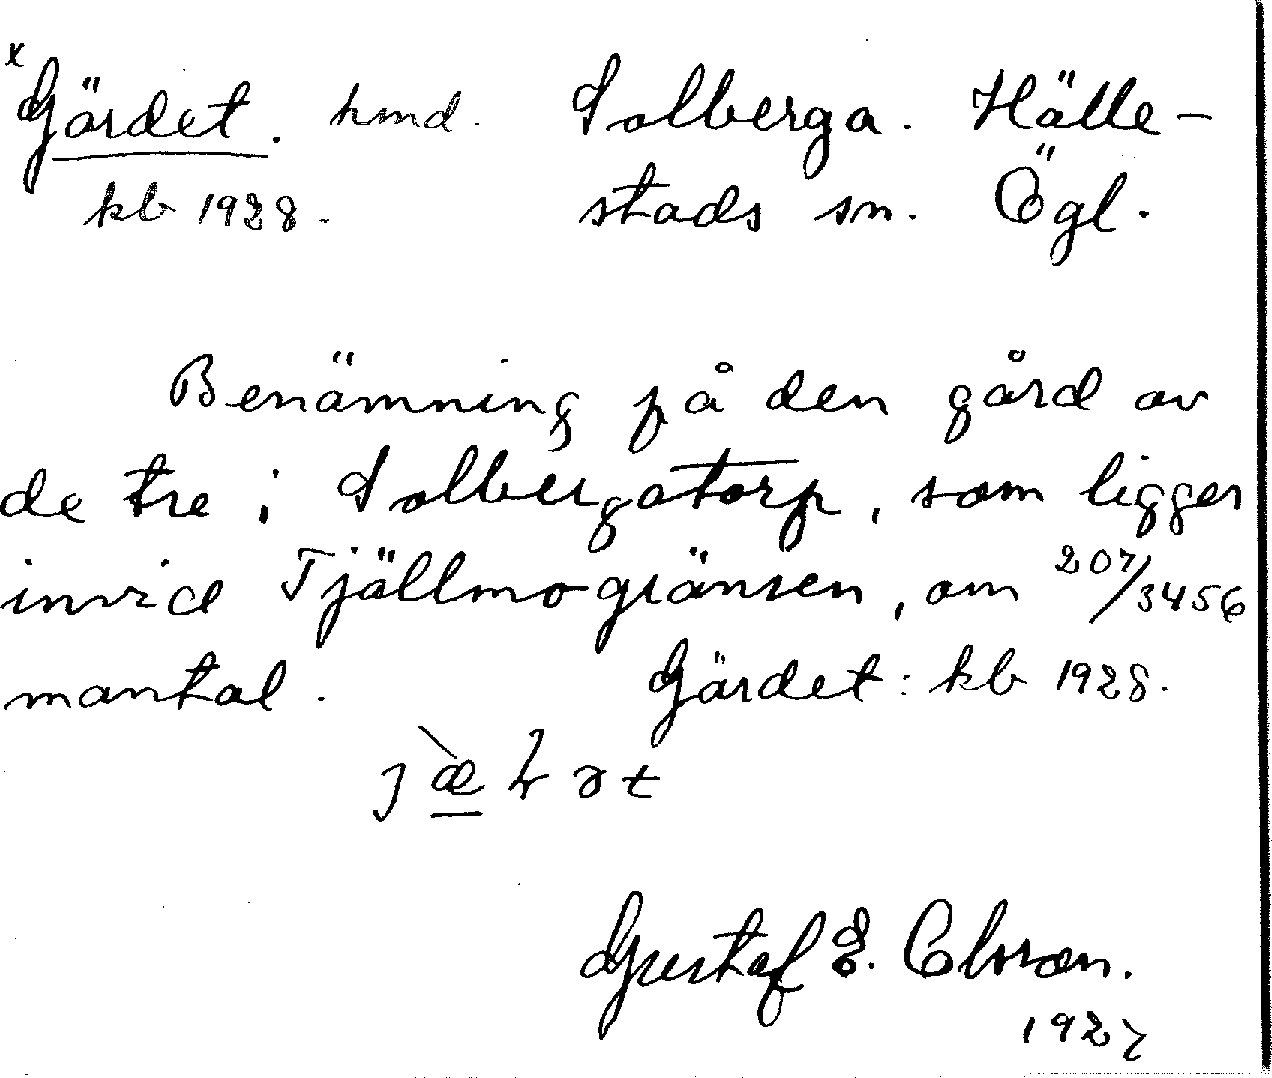 x Gärdet. hmd. Solberga. Hälle-
kb 1928. stads sn. Ögl.
Benämning på den gård av
de tre i Solbergatorp, som ligger
invid Tjällmogränsen, om 207/3456
mantal. Gärdet: kb 1928.
Gustaf E. Clsson.
1927